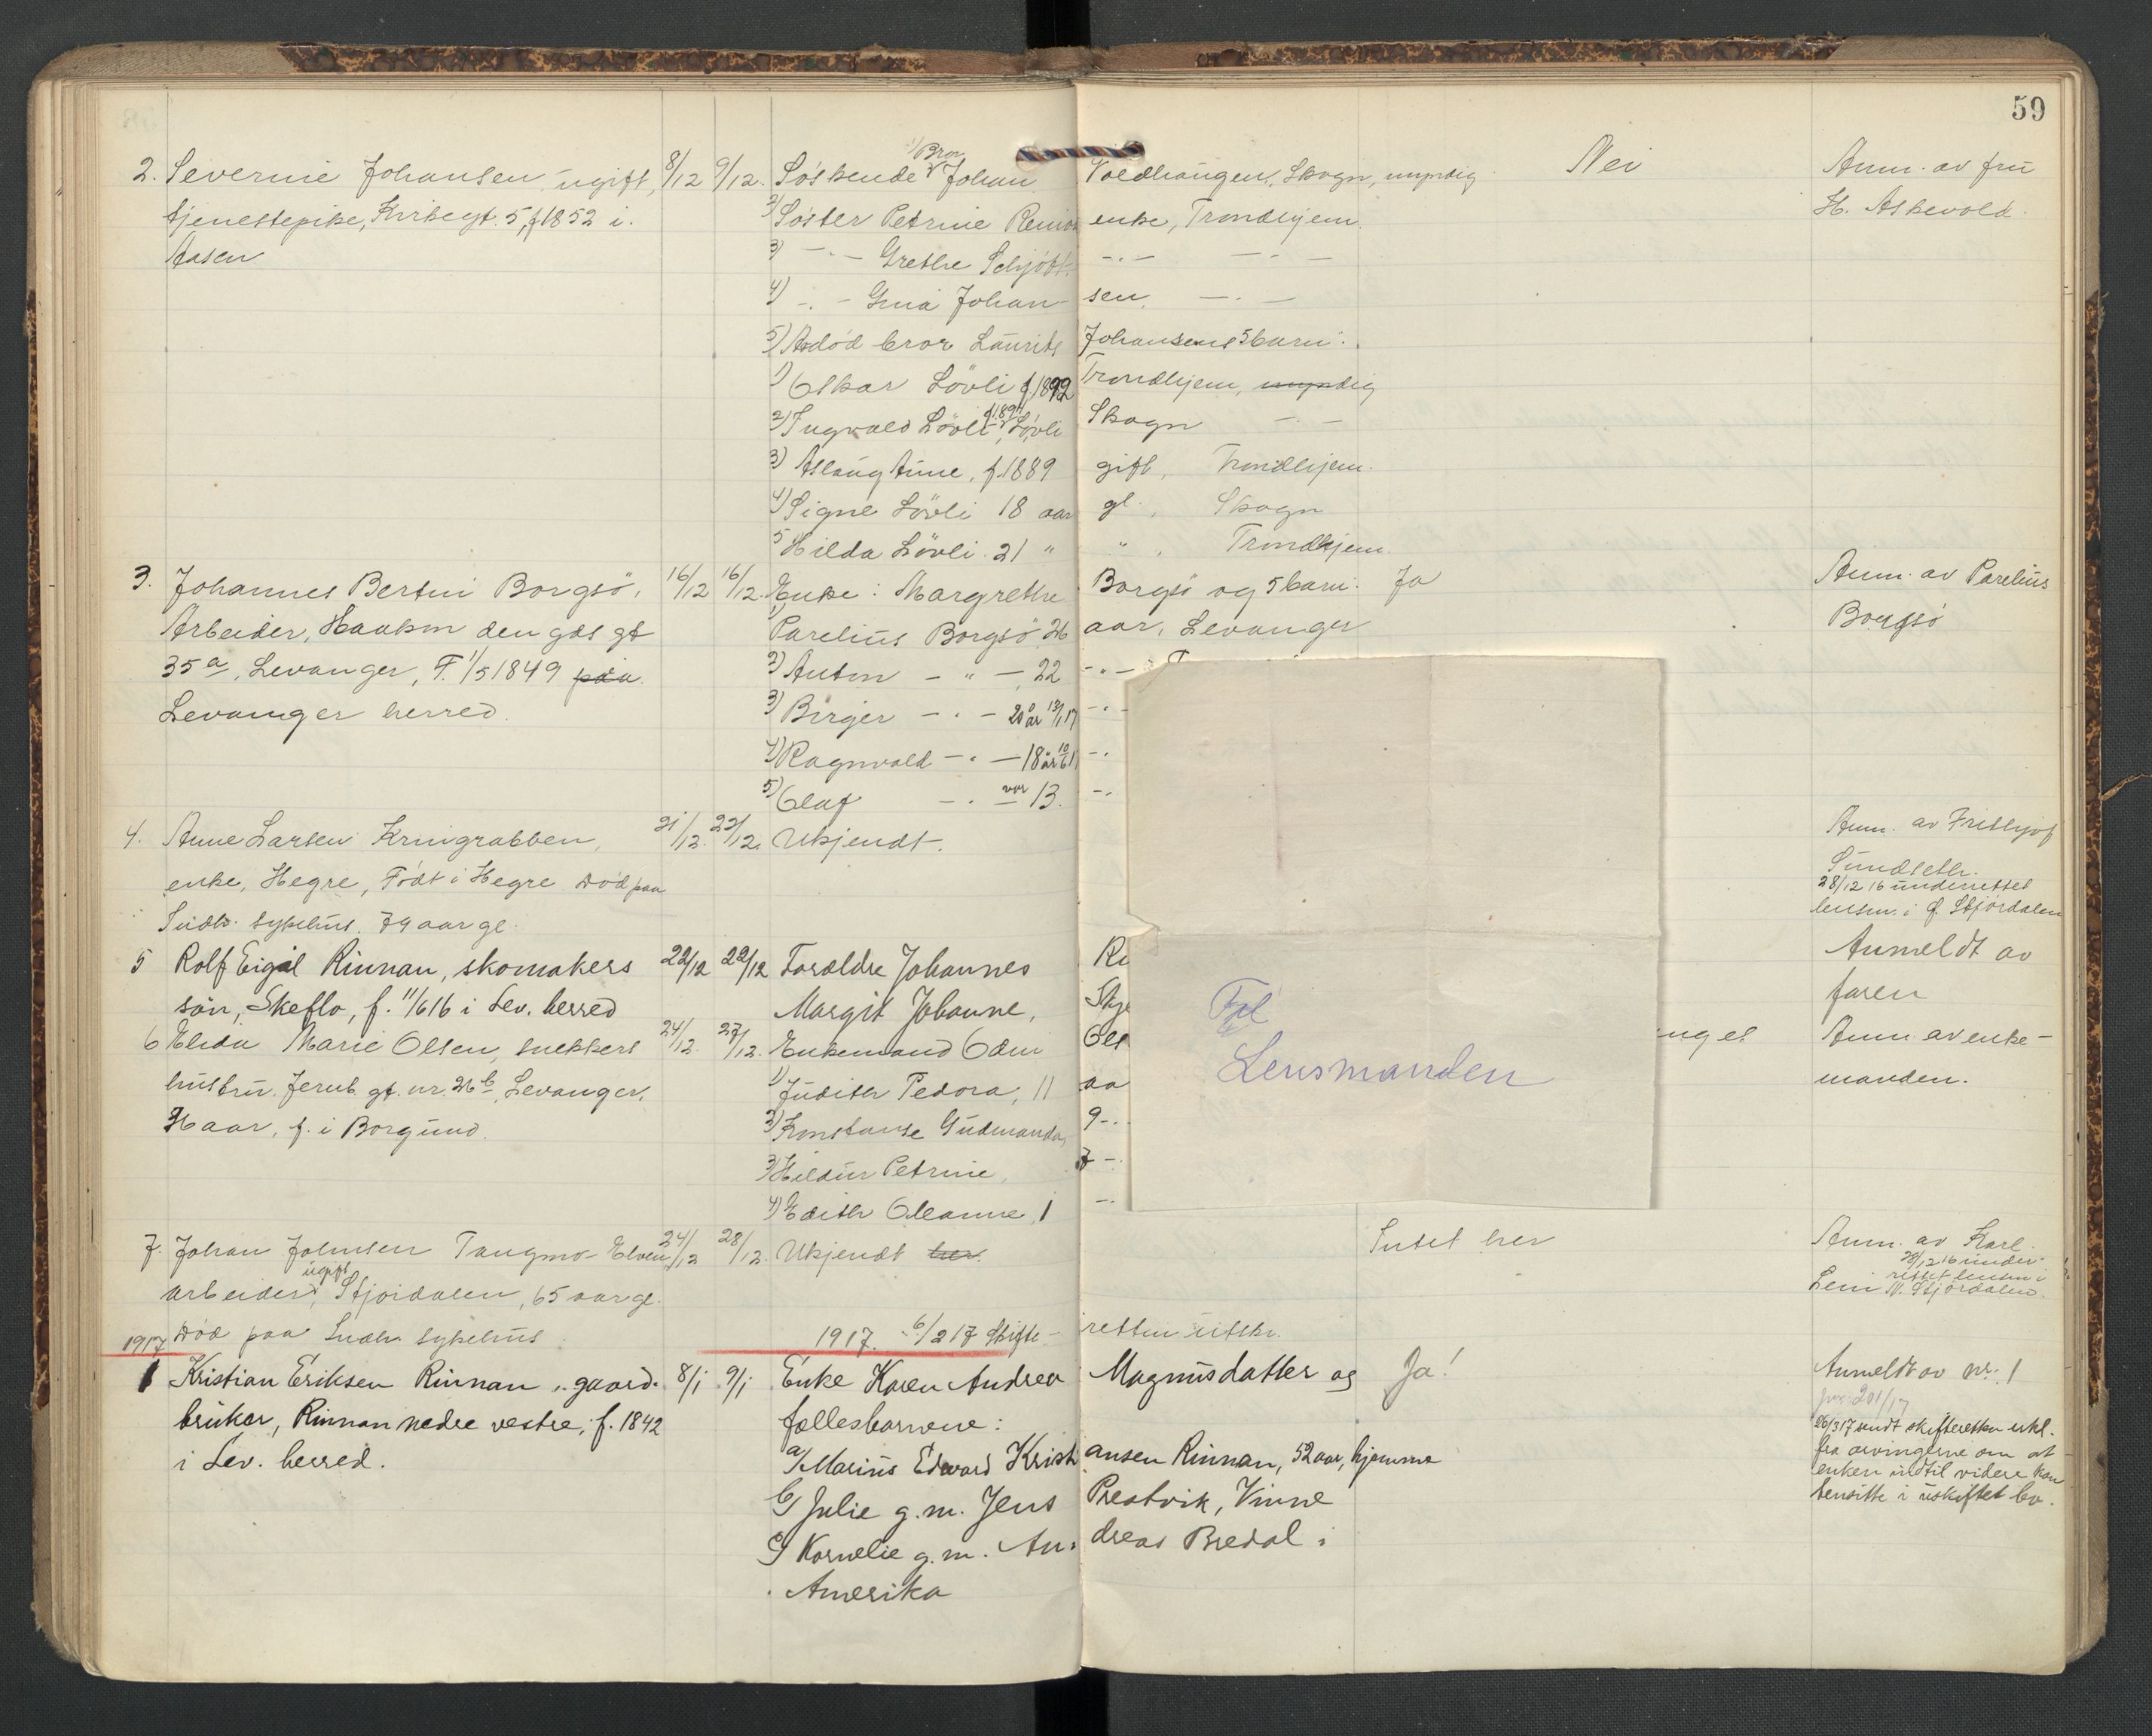 59
2. Severine Johansen ugift, 8/12 9/12. Søskende 1) Bror Johan Voldhaugen, Skogn, myndig Nei Anm. av fru
tjenestepike, Kirkegt. 5, f 1852 i. 2) Søster Petrine enke, Trondhjem. H. Askevold.
Aasen 3) — " — Grethe Schjøtt — " — — " —
4) — " — Gina Johan- sen, — " —
5) Avdød bror Laurits Johansens 5 barn:
1) Oskar Lövli f 1892 Trondhjem, myndig
2) Ingvald Lövli Skogn — " —
3) Aslaug Aune, f. 1889 gift, Trondhjem.
4) Signe Lövli 18 aar gl. , Skogn
5 Hilda Lövli 21 " " , Trondhjem.
3. Johannes Bertin Borgsö, 16/12 16/12. Enke: Margrethe Borgsö og 5 barn: Ja Anm. av Parelius
Arbeider, Haakon den gds gt 1) Parelius Borgsö 26 aar, Levanger Borgsö
35a, Levanger, F. 1/5 1849 paa 2) Anton — " — 22 — " —
Levanger herred. 3) Birger — " — 20 år 13/1 17 — " —
4) Ragnvald — " — 18 år — "
5) Olaf — " — var 13. — "
4. Anne Larsen Kringrabben, 21/12. 22/12. Ukjendt. Anm. av Frithjof
enke, Hegre, Født i Hegre død paa Sundseth.
28/12 16 underrettet
Indh. sykehus. 79 aar gl. lensm. i Stjørdalen
5 Rolf Eigil Rinnan, skomakers 22/12 22/12 Forældre Johannes Ri Anmeldt av
søn, Skeflo, f. 11/6 16 i Lev. herred Margit Johanne, Skj faren
6 Elida Marie Olsen, snekkers 24/12. 27/12. Enkemand Odin Ols nges Anm av enke-
hustru. Jernb. gt. nr. 26b, Levanger, 1) Judith Pedora, 11 aa manden.
aar, f. i Borgund. 2) Konstanse Gudmanda, 9 - "
3) Hildur Petrine, 7 —
4) Edith Oleanne 1 — "
7. Johan Johnsen Tangmo-Elven 24/12 28/12. Ukjendt her. Intet her Anm. av Karl
arbeider, ugift, Stjørdalen, 65 aar gl. 28/12 16 under-
rettet lensm i
N. Stjørdalen.
død paa Indh. sykehus
1917 1917. 6/2 17 Skifte- retten utskr.
1 Kristian Eriksen Rinnan, gaard- 8/1 9/1 Enke Karen Andrea Magnusdatter og Ja! Anmeldt av nr. 1
bruker, Rinnan nedre vestre, f. 1842 fællesbarnene:
i Lev. herred. a/ Marius Edvard Kristi ansen Rinnan, 52 aar, hjemme
26/3 17 sendt skifteretten erkl.
fra arvingerne om at
enken indtil videre kan
hensitte i uskiftet bo.
b/ Julie g.m. Jens Prestvik, Vinne
c/ Kornelie g.m. An- dreas Bredal i
Amerika
Til
Lensmanden